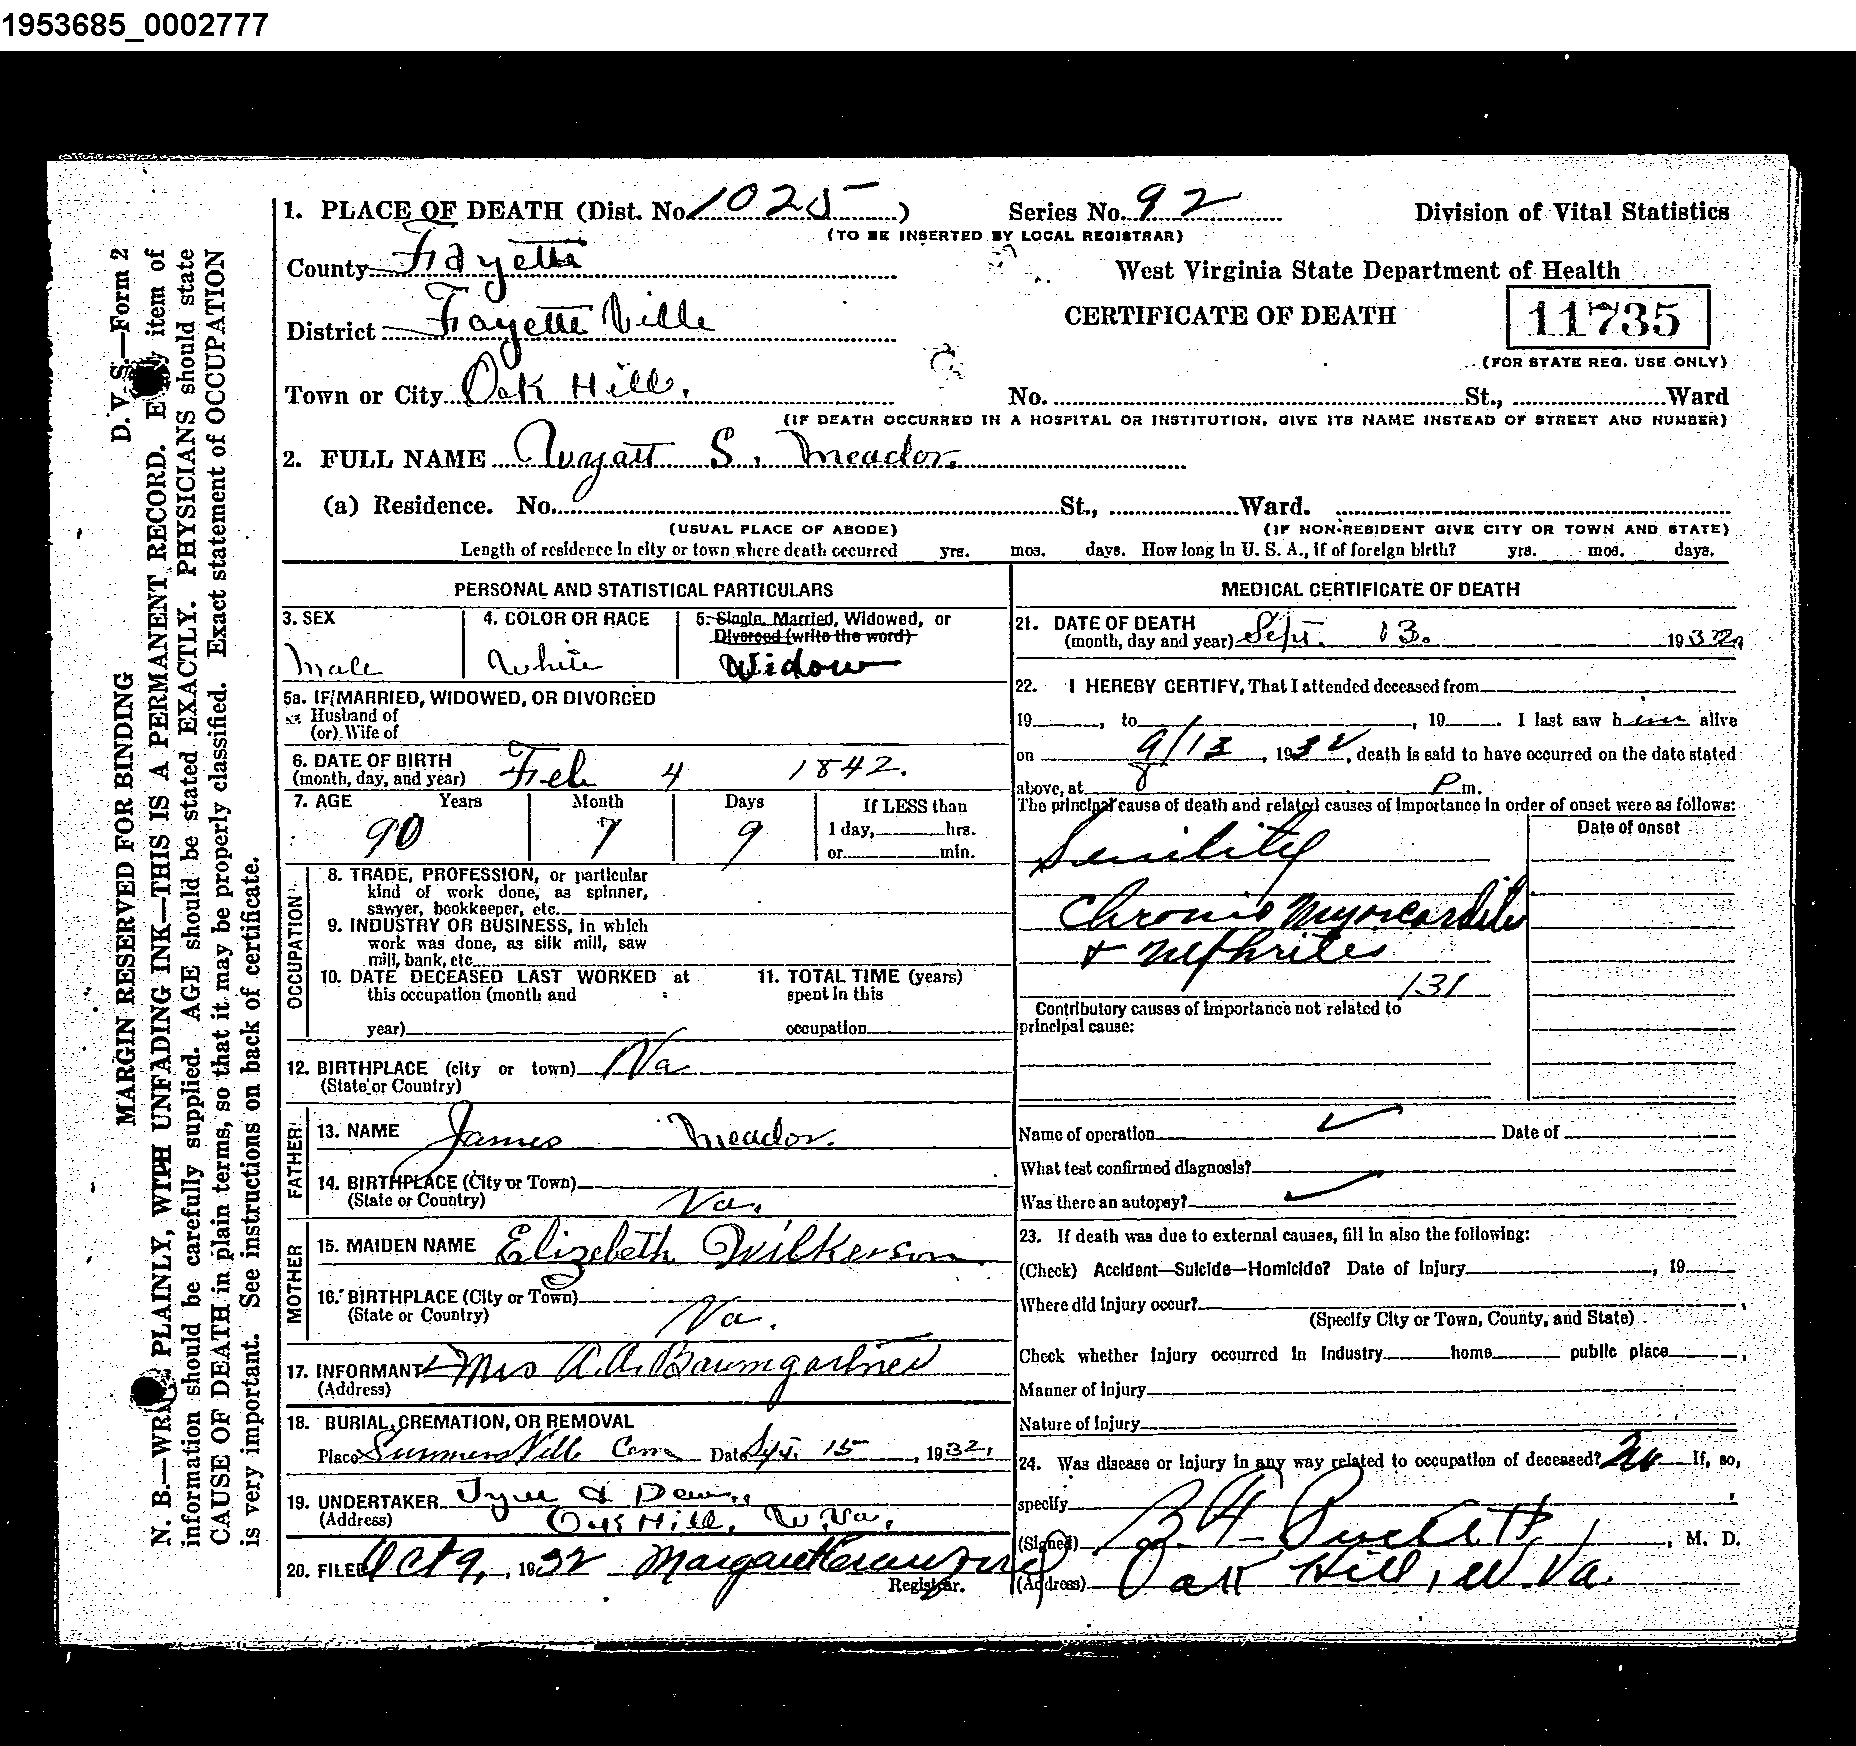 1953685_0002777
1. PLACE OF DEATH (Dist. No. 1025) Series No. 92 Division of Vital Statistics
(TO BE INSERTED BY LOCAL REGISTRAR)
County Fayette West Virginia State Department of Health
District Fayette Ville CERTIFICATE OF DEATH 11735
(FOR STATE REG. USE ONLY)
Town or City Oak Hill. No. St., Ward
(IF DEATH OCCURRED IN A HOSPITAL OR INSTITUTION, GIVE ITS NAME INSTEAD OF STREET AND NUMBER)
2. FULL NAME Wyatt S. Meador.
(a) Residence. No. St., Ward.
(USUAL PLACE OF ABODE) (IF NON-RESIDENT GIVE CITY OR TOWN AND STATE)
Length of residence in city or town where death occurred yrs. mos. days. How long in U. S. A., if of foreign birth? yrs. mos. days.
PERSONAL AND STATISTICAL PARTICULARS
3. SEX 4. COLOR OR RACE 5. Single, Married, Widowed, or
Divorced (write the word)
Male White Widow
5a. IF MARRIED, WIDOWED, OR DIVORCED
Husband of
(or) Wife of
6. DATE OF BIRTH
(month, day, and year) Feb 4 1842.
7. AGE Years Month Days If LESS than
90 7 9 1 day, hrs.
or min.
OCCUPATION
8. TRADE, PROFESSION, or particular
kind of work done, as spinner,
sawyer, bookkeeper, etc.
9. INDUSTRY OR BUSINESS, in which
work was done, as silk mill, saw
mill, bank, etc.
10. DATE DECEASED LAST WORKED at 11. TOTAL TIME (years)
this occupation (month and spent in this
year) occupation
12. BIRTHPLACE (city or town) Va
(State or Country)
FATHER
13. NAME James Meador.
14. BIRTHPLACE (City or Town)
(State or Country) Va.
MOTHER
15. MAIDEN NAME Elizebeth Wilkerson
16. BIRTHPLACE (City or Town)
(State or Country) Va.
17. INFORMANT Mrs A. A. Baumgartner
(Address)
18. BURIAL, CREMATION, OR REMOVAL
Place SummersVill Cem Date Sept. 15, 1932.
19. UNDERTAKER
(Address) Oak Hill, W.Va.
20. FILED Oct 9, 1932 Margaret
Registrar.
MEDICAL CERTIFICATE OF DEATH
21. DATE OF DEATH
(month, day and year) Sept. 13. 1932
22. I HEREBY CERTIFY, That I attended deceased from
19 , to , 19 . I last saw him alive
on 9/13, 1932, death is said to have occurred on the date stated
above, at P m.
The principal cause of death and related causes of importance in order of onset were as follows:
Date of onset
Senility
Chronic Myocarditis
& Nephrites
131
Contributory causes of importance not related to
principal cause:
Name of operation Date of
What test confirmed diagnosis?
Was there an autopsy?
23. If death was due to external causes, fill in also the following:
(Check) Accident—Suicide—Homicide? Date of injury , 19
Where did injury occur?
(Specify City or Town, County, and State)
Check whether injury occurred in industry home public place
Manner of injury
Nature of injury
24. Was disease or injury in any way related to occupation of deceased? No If, so,
specify
(Signed) B. F. Puckett, M. D.
(Address) Oak Hill, W. Va.
D. V. S.—Form 2
MARGIN RESERVED FOR BINDING
N. B.—WRITE PLAINLY, WITH UNFADING INK—THIS IS A PERMANENT RECORD. Every item of
information should be carefully supplied. AGE should be stated EXACTLY. PHYSICIANS should state
CAUSE OF DEATH in plain terms, so that it may be properly classified. Exact statement of OCCUPATION
is very important. See instructions on back of certificate.